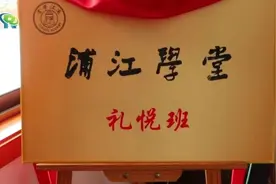 浦江學堂
礼悦班